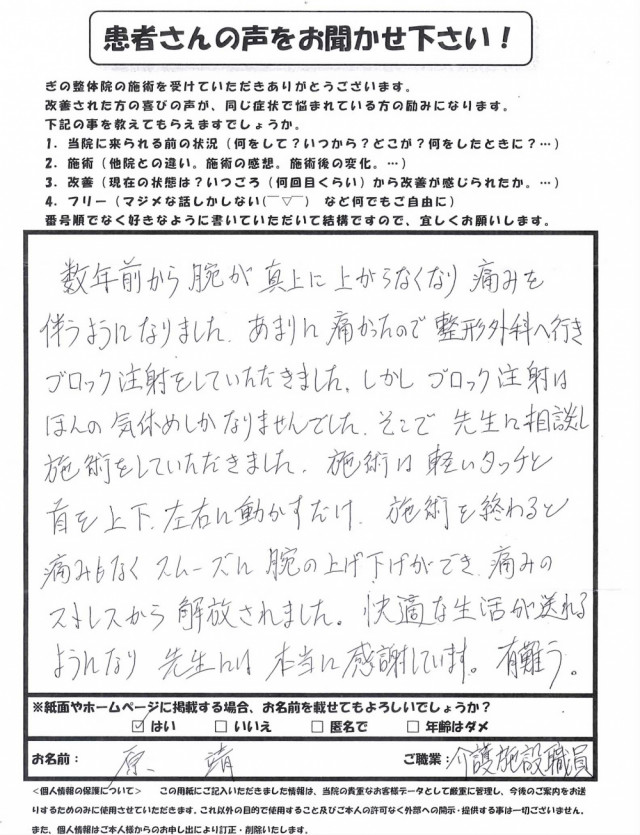 患者さんの声をお聞かせ下さい！
ぎの整体院の施術を受けていただきありがとうございます。
改善された方の喜びの声が、同じ症状で悩まれている方の励みになります。
下記の事を教えてもらえますでしょうか。
1．当院に来られる前の状況（何をして？いつから？どこが？何をしたときに？…）
2．施術（他院との違い。施術の感想。施術後の変化。…）
3．改善（現在の状態は？いつごろ（何回目くらい）から改善が感じられたか。…）
4．フリー（マジメな話しかしない(￣▽￣)　など何でもご自由に）
番号順でなく好きなように書いていただいて結構ですので、宜しくお願いします。
数年前から腕が真上に上がらなくなり痛みを
伴うようになりました。あまりに痛かったので整形外科へ行き
ブロック注射をしていただきました。しかしブロック注射は
ほんの気休めしかなりませんでした。そこで先生に相談し
施術をしていただきました。施術は軽いタッチと
首を上下、左右に動かすだけ。施術を終わると
痛みもなくスムーズに腕の上げ下げができ、痛みの
ストレスから解放されました。快適な生活が送れる
ようになり先生には本当に感謝しています。有難う。
※紙面やホームページに掲載する場合、お名前を載せてもよろしいでしょうか？
☑はい　□いいえ　□匿名で　□年齢はダメ
お名前：原　靖　ご職業：介護施設職員
<個人情報の保護について>　この用紙にご記入いただきました情報は、当院の貴重なお客様データとして厳重に管理し、今後のご案内をお送
りするためのみに使用させていただきます。これ以外の目的で使用すること及びご本人の許可なく外部への開示・提供する事は一切ございません。
また、個人情報はご本人様からのお申し出により訂正・削除いたします。